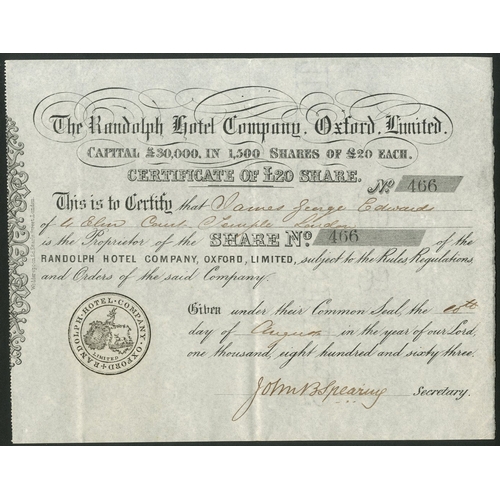 The Randolph Hotel Company, Oxford, Limited.
CAPITAL £30,000, IN 1,500 SHARES OF £20 EACH.
CERTIFICATE OF £20 SHARE.
No. 466
This is to Certify that James George Edwards
of 4 Elm Court Temple
is the Proprietor of the SHARE No. 466 of the
RANDOLPH HOTEL COMPANY, OXFORD, LIMITED, subject to the Rules Regulations
and Orders of the said Company.
Given under their Common Seal, the
day of August in the year of our Lord,
one thousand, eight hundred and sixty three.
John B Spearing Secretary.
RANDOLPH · HOTEL · COMPANY · OXFORD
LIMITED